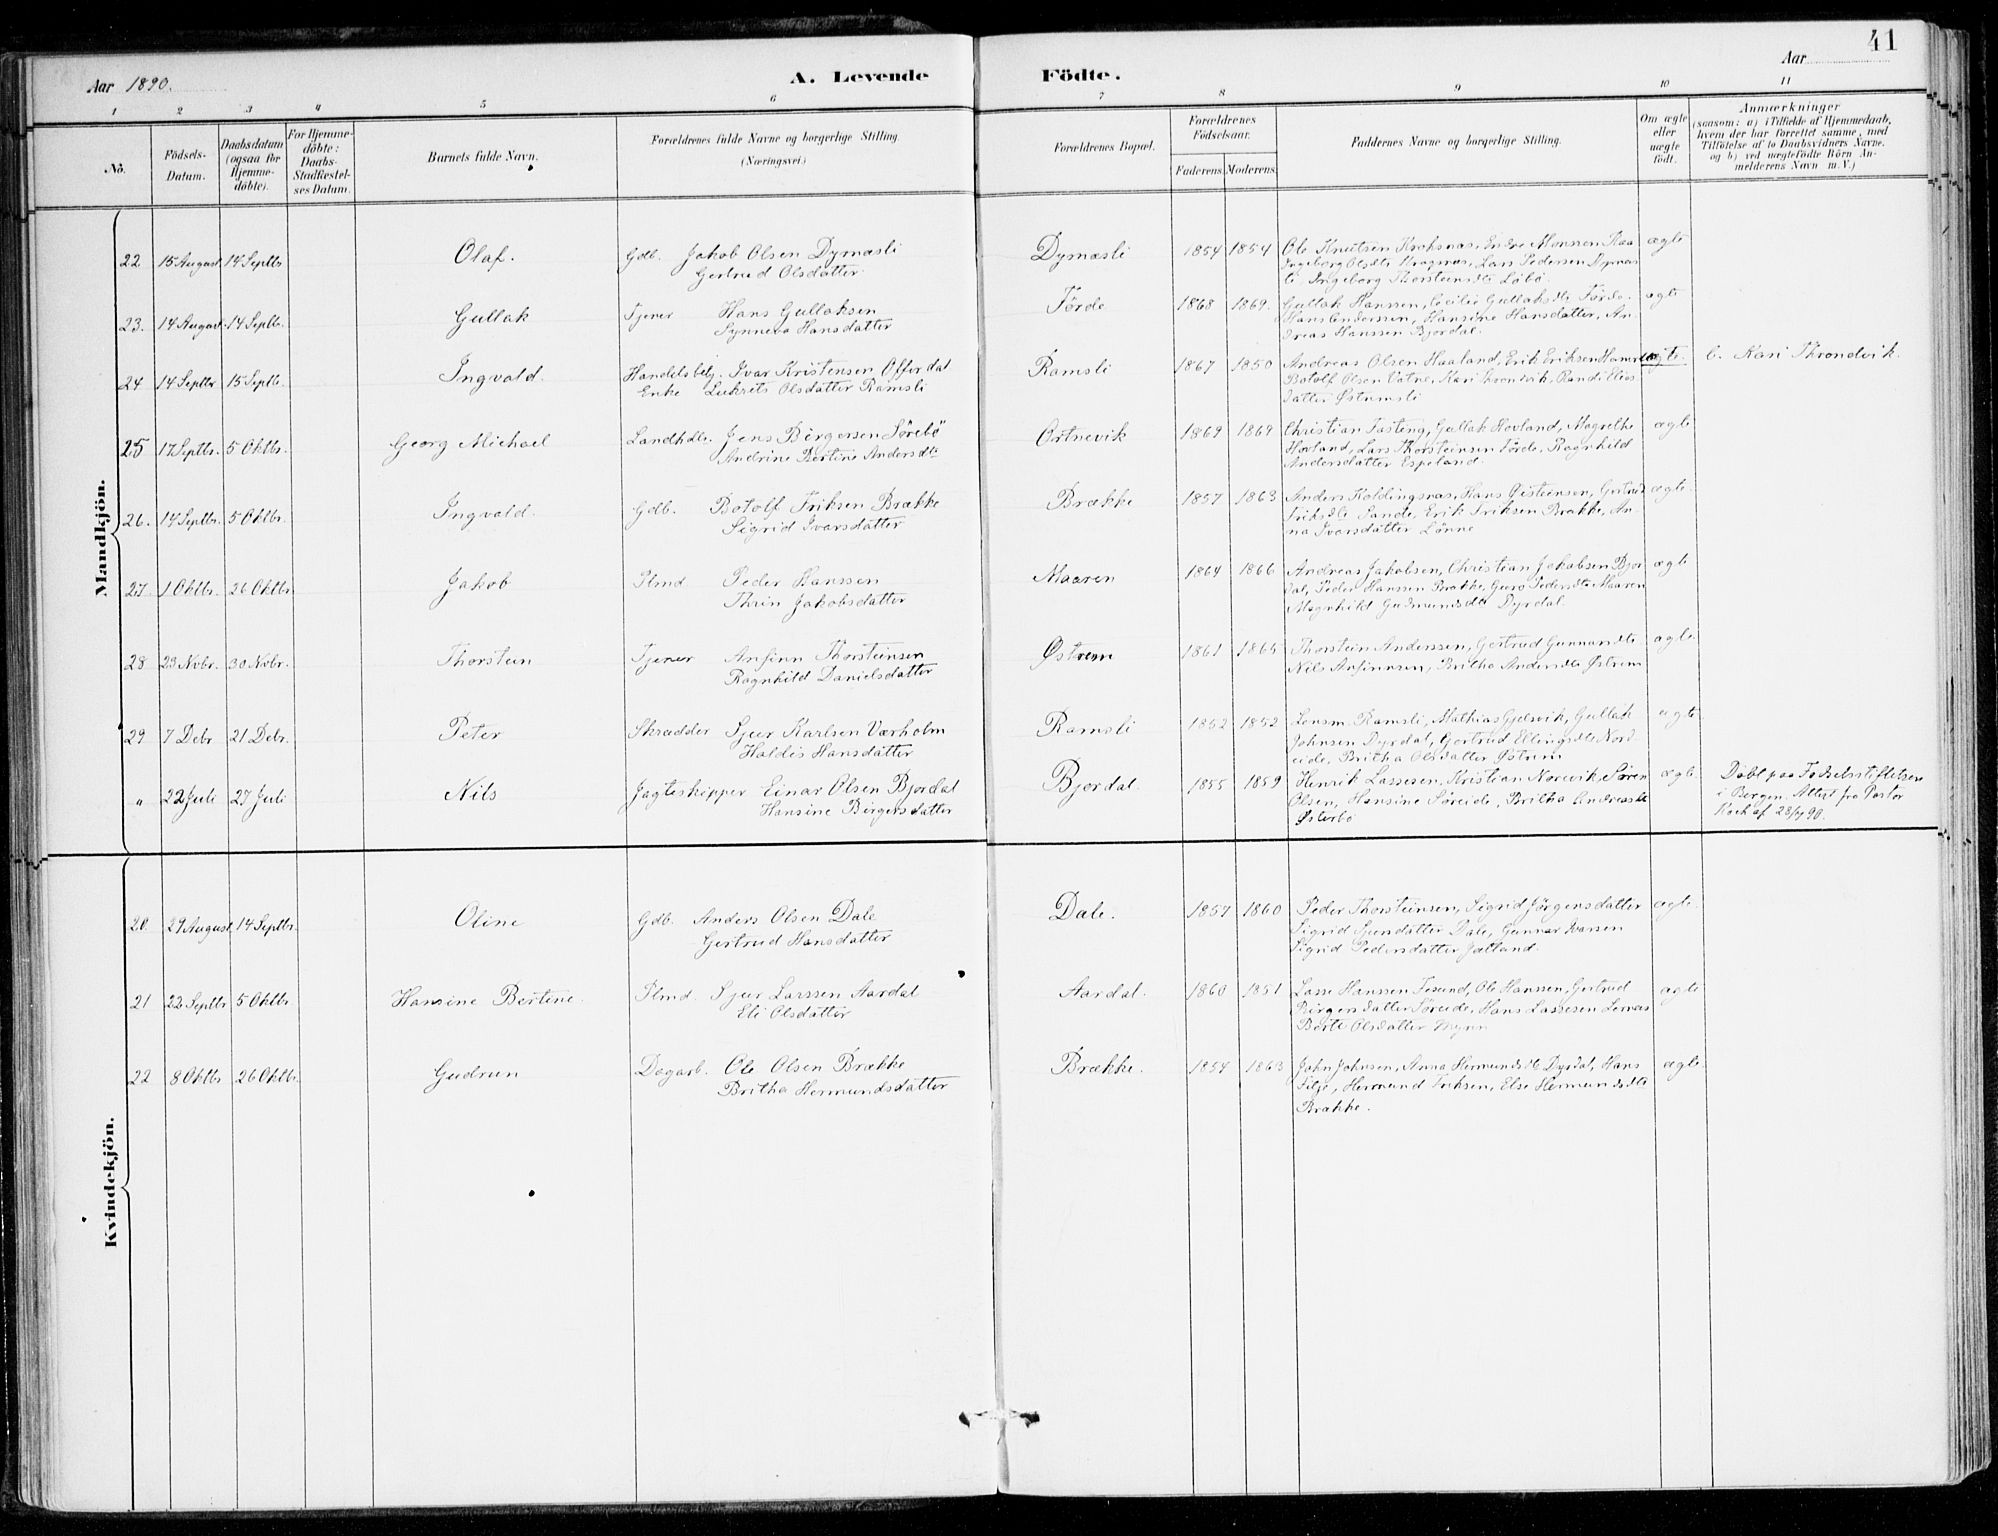 Aar 1890.
A. Levende
Födte.
Aar
41
1 2 3 4 5 6 7 8 9 10 11
No.
Födsels-
Datum.
Daabsdatum
(ogsaa for
Hjemme-
döbte).
For Hjemme-
döbte:
Daabs-
Stadfæstel-
ses Datum.
Barnets fulde Navn.
Forældrenes fulde Navne og borgerlige Stilling.
(Næringsvei.)
Forældrenes Bopæl.
Forældrenes
Födselsaar.
Faderens. Moderens.
Faddernes Navne og borgerlige Stilling.
Om ægte
eller
uægte
födt.
Anmærkninger
(saasom: a) i Tilfælde af Hjemmedaab,
hvem der har forrettet samme, med
Tilföielse af to Daabsvidners Navne.
og b) ved uægtefödte Börn An-
melderens Navn m. V.)
Mandkjön.
22 15 August 14 Septbr Olaf. Gdb. Jakob Olsen Dymæsli Dymæsli 1854 1854 Ole Knutsen Kroksnæs, Endre Monssen Kaa ægte
Gertrud Olsdatter
Ingeborg Olsdtr Kragnæs, Lars Pedersen Dymæs
li, Ingeborg Thorsteinsdtr Løbø.
23. 14 August 14 Septbr. Gullak Tjener Hans Gullaksen Förde 1868 1869. Gullak Hanssen, Cecilie Gullaksdtr Förde. ægte
Synneva Hansdatter
Hans Anderssen, Hansine Hansdatter, An-
dreas Hanssen Bjordal.
24 14 Septbr 15 Septbr. Ingvald. Handelsbetj. Ivar Kristensen Offerdal Ramsli 1867 1850 Andreas Olsen Haaland, Erik Eriksen uægte. b. Kari Throndvik.
Enke Lukrets Olsdatter Ramsli
Botolf Olsen Vatne, Kari Throndvik, Randi Elias
datter Østrumsli
25 17 Septbr. 5 Oktbr. Georg Michael Landhdlr. Jens Börgersen Sörebö Ortnevik 1869 1869 Christian Tasteng, Gullak Hovland, Magrethe ægte
Andrine Bertine Andersdtr
Hovland, Lars Thorsteinsen Förde, Ragnhild
Andersdatter Espeland.
26. 14 Septbr. 5 Oktbr. Ingvald. Gdb. Botolf Eriksen Brække Brække 1857 1863 Anders Koldingsnæs, Hans Øisteinsen, Gertrud ægte.
Sigrid Ivarsdatter
Eriksdtr Sande, Erik Eriksen Brække, An-
na Ivarsdatter Lönne
27. 1 Oktbr. 26 Oktbr Jakob Plmd Peder Hanssen Maaren 1864 1866 Andreas Jakobsen, Christian Jakobsen Bjor ægte
Thrin Jakobsdatter
dal, Peder Hanssen Brække, Guro Pedersdtr Maaren
Magnhild Gudmundsdtr Dyrdal.
28 23 Novbr. 30 Novbr. Thorstein Tjener Anfinn Thorsteinsen Østrem 1861 1865 Thorstein Anderssen, Gertrud Gunnarsdtr ægte
Ragnhild Danielsdatter
Nils Anfinnsen, Britha Andersdtr Østrem
29 7 Debr 21 Debr. Peter Skrædder Sjur Karlsen Værholm Ramsli 1852 1852 Lensm. Ramsli, Mathias Gjelsvik, Gullak ægte
Haldis Hansdatter
Johnsen Dyrdal, Gertrud Ellingsdtr Nord
eide, Britha Olsdatter Østrem
" 22 Juli 27 Juli Nils Jagteskipper Einar Olsen Bjordal Bjordal. 1855 1859 Henrik Lassesen, Kristian Norevik, Sören ægte. Döbt paa Födselsstiftelsen
Hansine Börgersdatter
Olsen, Hansine Søreide, Britha Andreasdtr
Østerbö
i Bergen. Attest fra Pastor
Koch af 28/7 90.
Kvindekjön.
20. 29 August 14 Septbr. Oline Gdb. Anders Olsen Dale Dale. 1857 1860 Peder Thorsteinsen, Sigrid Jörgensdatter ægte.
Gertrud Hansdatter
Sigrid Sjursdatter Dale, Gunnar Ivarsen
Sigrid Pedersdatter Jetland.
21 22 Septbr 5 Oktbr Hansine Bertine. Plmd. Sjur Larssen Aardal Aardal. 1860 1851 Lasse Hanssen Tesund, Ole Hanssen, Gertrud ægte
Eli Olsdatter
Börgersdatter Søreide, Hans Lassesen Lernæs
Berte Olsdatter Mynn
22 8 Oktbr 26 Oktbr. Gudrun Dagarb. Ole Olsen Brække Brække. 1854 1863 John Johnsen, Anna Hermundsdtr Dyrdal, Hans ægte.
Britha Hermundsdatter
Silje, Hermund Eriksen, Else Hermundsdtr
Brække.